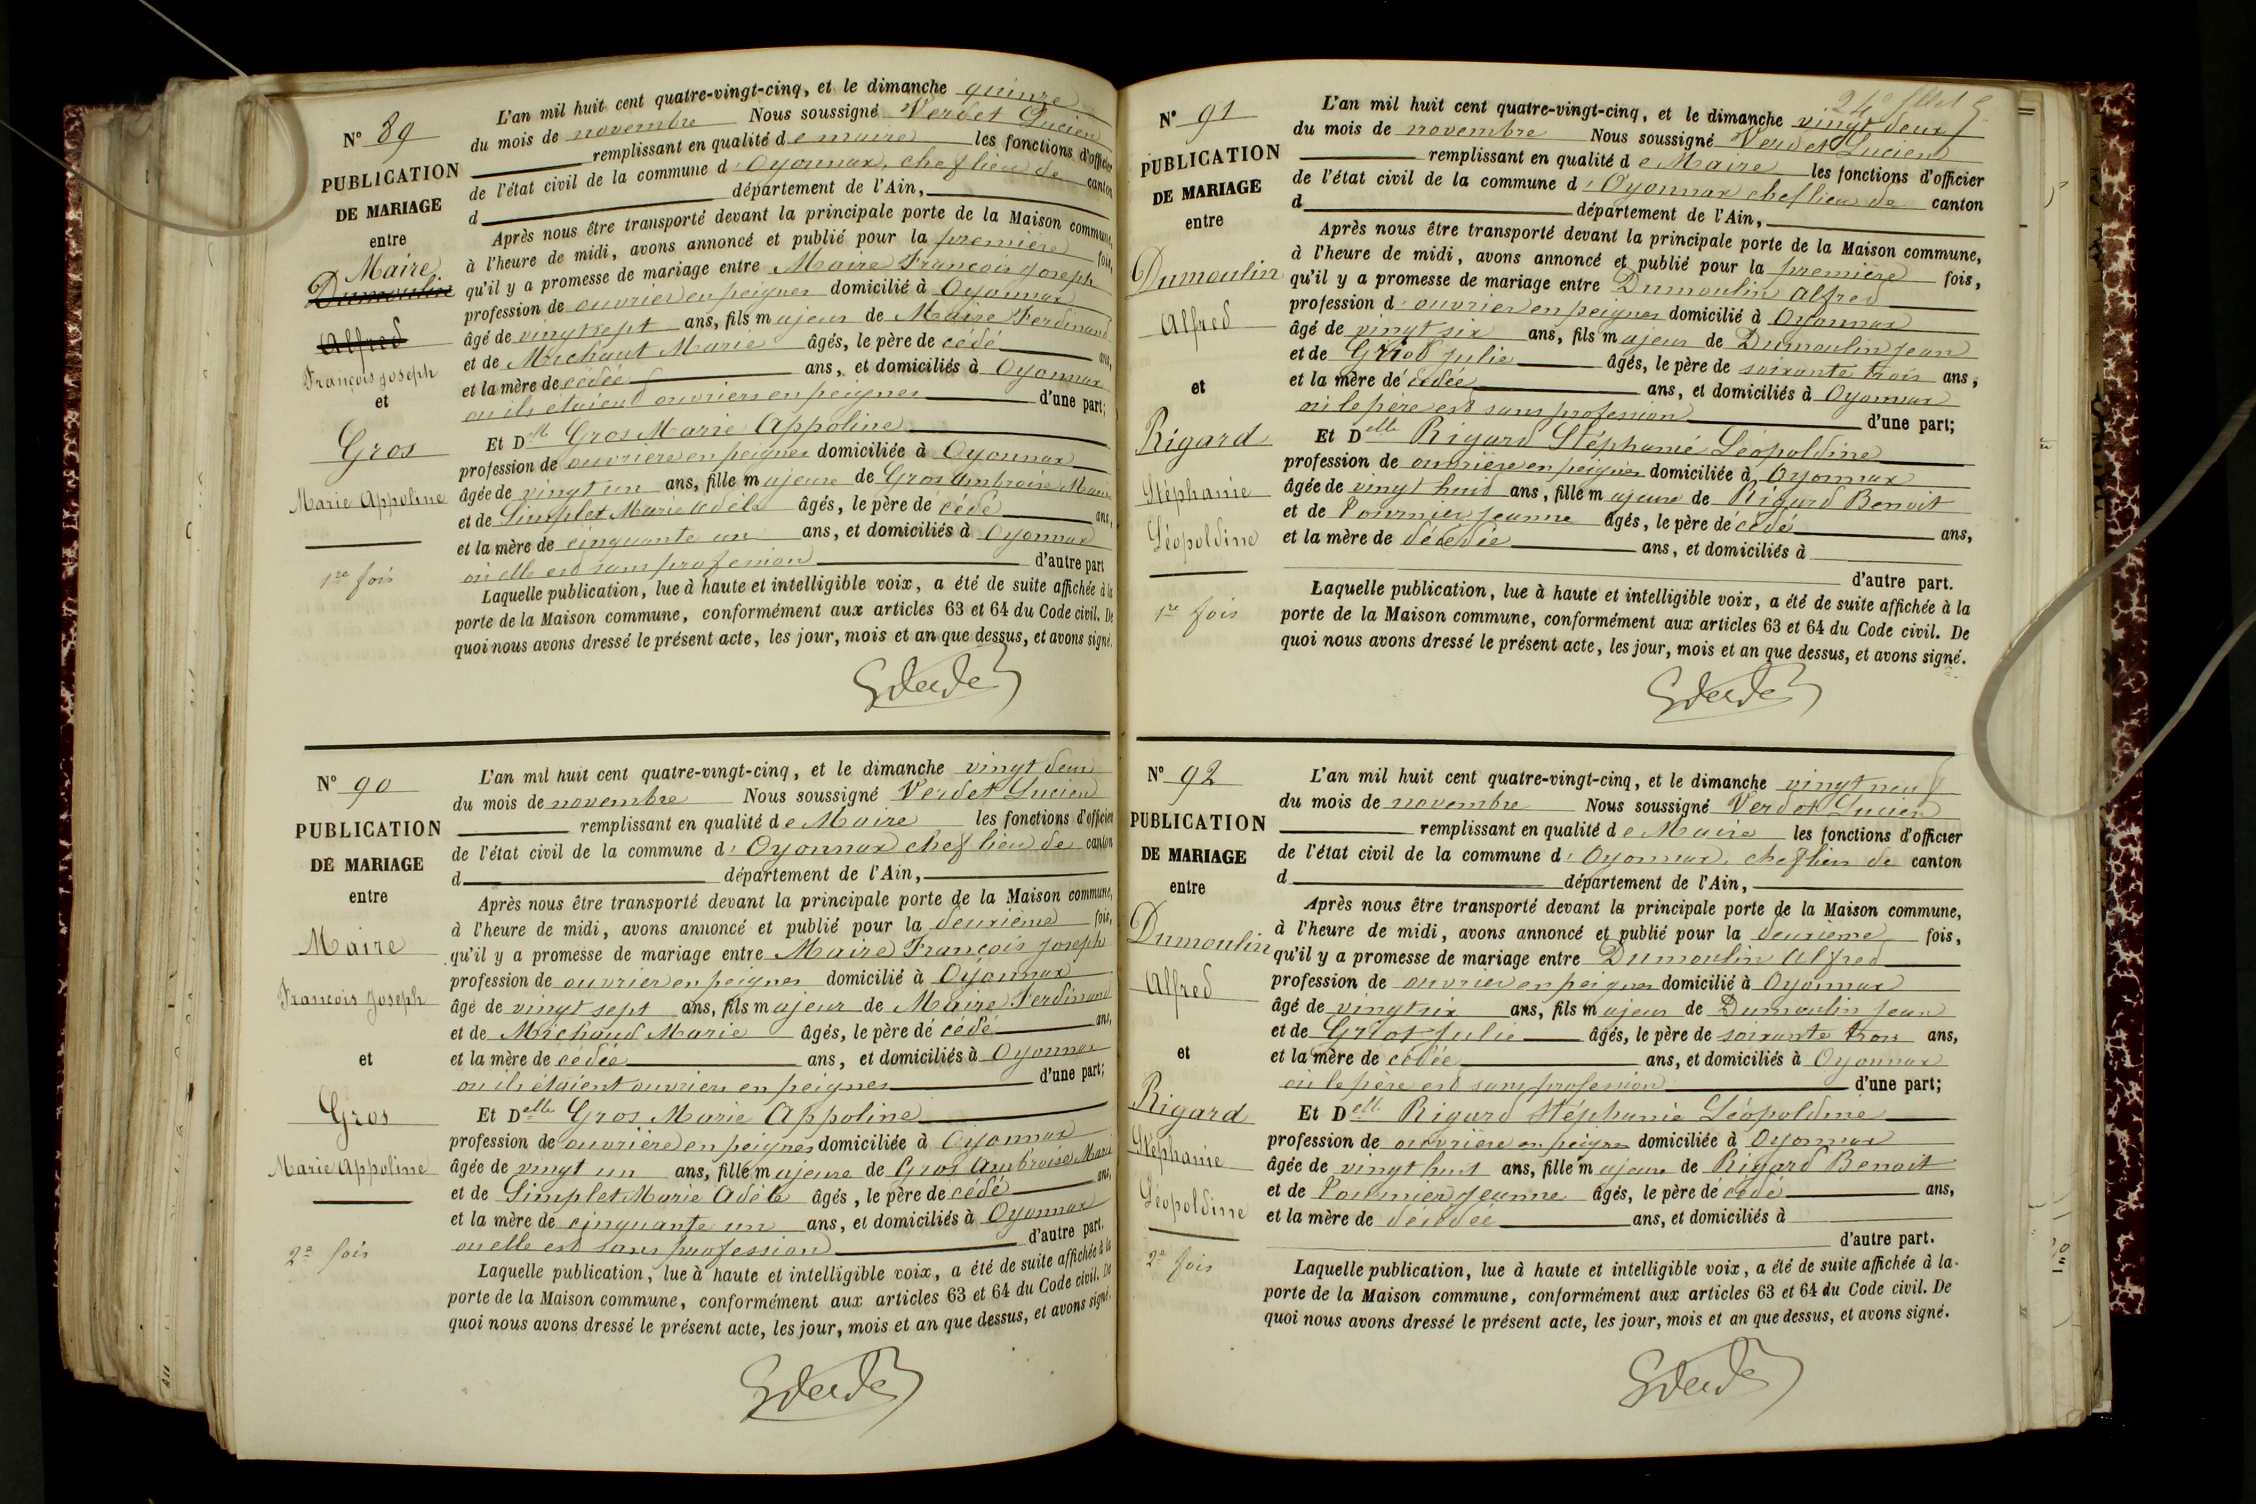 N° 89
PUBLICATION
DE MARIAGE
entre
Maire
Dumoulin
Alfred
François Joseph
et
Gros
Marie Appoline
1re fois
L'an mil huit cent quatre-vingt-cinq, et le dimanche quinze
du mois de novembre Nous soussigné Verdet Lucien
remplissant en qualité de maire les fonctions d'officier
de l'état civil de la commune d'Oyonnax, chef lieu de canton
d département de l'Ain,
Après nous être transporté devant la principale porte de la Maison commune,
à l'heure de midi, avons annoncé et publié pour la première fois,
qu'il y a promesse de mariage entre Maire François Joseph
profession de ouvrier en peignes domicilié à Oyonnax
âgé de vingt sept ans, fils majeur de Maire Ferdinand
et de Michaut Marie âgés, le père de cédé ans,
et la mère de cédée ans, et domiciliés à Oyonnax
où ils étaient ouvriers en peignes d'une part;
Et Dlle Gros Marie Appoline
profession de ouvrière en peignes domiciliée à Oyonnax
âgée de vingt un ans, fille majeure de Gros Ambroise Marie
et de Simplet Marie Adèle âgés, le père de cédé ans,
et la mère de cinquante un ans, et domiciliés à Oyonnax
où elle est sans profession d'autre part
Laquelle publication, lue à haute et intelligible voix, a été de suite affichée à la
porte de la Maison commune, conformément aux articles 63 et 64 du Code civil. De
quoi nous avons dressé le présent acte, les jour, mois et an que dessus, et avons signé.
N° 90
PUBLICATION
DE MARIAGE
entre
Maire
François Joseph
et
Gros
Marie Appoline
2e fois
L'an mil huit cent quatre-vingt-cinq, et le dimanche vingt deux
du mois de novembre Nous soussigné Verdet Lucien
remplissant en qualité de Maire les fonctions d'officier
de l'état civil de la commune d'Oyonnax chef lieu de canton
d département de l'Ain,
Après nous être transporté devant la principale porte de la Maison commune,
à l'heure de midi, avons annoncé et publié pour la deuxième fois,
qu'il y a promesse de mariage entre Maire François Joseph
profession de ouvrier en peignes domicilié à Oyonnax
âgé de vingt sept ans, fils majeur de Maire Ferdinand
et de Michaud Marie âgés, le père dé cédé ans,
et la mère de cédée ans, et domiciliés à Oyonnax
où ils étaient ouvriers en peignes d'une part;
Et Delle Gros Marie Appoline
profession de ouvrière en peignes domiciliée à Oyonnax
âgée de vingt un ans, fille majeure de Gros Ambroise Marie
et de Simplet Marie Adèle âgés, le père de cédé ans,
et la mère de cinquante un ans, et domiciliés à Oyonnax
où elle est sans profession d'autre part.
Laquelle publication, lue à haute et intelligible voix, a été de suite affichée à la
porte de la Maison commune, conformément aux articles 63 et 64 du Code civil. De
quoi nous avons dressé le présent acte, les jour, mois et an que dessus, et avons signé.
24e
N° 91
PUBLICATION
DE MARIAGE
entre
Dumoulin
Alfred
et
Rigard
Stéphanie
Léopoldine
1re fois
L'an mil huit cent quatre-vingt-cinq, et le dimanche vingt deux
du mois de novembre Nous soussigné Verdet Lucien
remplissant en qualité de Maire les fonctions d'officier
de l'état civil de la commune d'Oyonnax chef lieu de canton
d département de l'Ain,
Après nous être transporté devant la principale porte de la Maison commune,
à l'heure de midi, avons annoncé et publié pour la première fois,
qu'il y a promesse de mariage entre Dumoulin Alfred
profession d'ouvrier en peignes domicilié à Oyonnax
âgé de vingt six ans, fils majeur de Dumoulin Jean
et de Griot Julie âgés, le père de soixante trois ans,
et la mère dé cédée ans, et domiciliés à Oyonnax
où le père est sans profession d'une part;
Et Delle Rigard Stéphanie Léopoldine
profession de ouvrière en peignes domiciliée à Oyonnax
âgée de vingt huit ans, fille majeure de Rigard Benoit
et de Fournier Jeanne âgés, le père dé cédé ans,
et la mère de décédée ans, et domiciliés à
d'autre part.
Laquelle publication, lue à haute et intelligible voix, a été de suite affichée à la
porte de la Maison commune, conformément aux articles 63 et 64 du Code civil. De
quoi nous avons dressé le présent acte, les jour, mois et an que dessus, et avons signé.
N° 92
PUBLICATION
DE MARIAGE
entre
Dumoulin
Alfred
et
Rigard
Stéphanie
Léopoldine
2e fois
L'an mil huit cent quatre-vingt-cinq, et le dimanche vingt neuf
du mois de novembre Nous soussigné Verdet Lucien
remplissant en qualité de Maire les fonctions d'officier
de l'état civil de la commune d'Oyonnax, chef lieu de canton
d département de l'Ain,
Après nous être transporté devant la principale porte de la Maison commune,
à l'heure de midi, avons annoncé et publié pour la deuxième fois,
qu'il y a promesse de mariage entre Dumoulin Alfred
profession de ouvrier en peignes domicilié à Oyonnax
âgé de vingt six ans, fils majeur de Dumoulin Jean
et de Griot Julie âgés, le père de soixante trois ans,
et la mère de cédée ans, et domiciliés à Oyonnax
où le père est sans profession d'une part;
Et Delle Rigard Stéphanie Léopoldine
profession de ouvrière en peignes domiciliée à Oyonnax
âgée de vingt huit ans, fille majeure de Rigard Benoit
et de Fournier Jeanne âgés, le père dé cédé ans,
et la mère de décédée ans, et domiciliés à
d'autre part.
Laquelle publication, lue à haute et intelligible voix, a été de suite affichée à la
porte de la Maison commune, conformément aux articles 63 et 64 du Code civil. De
quoi nous avons dressé le présent acte, les jour, mois et an que dessus, et avons signé.